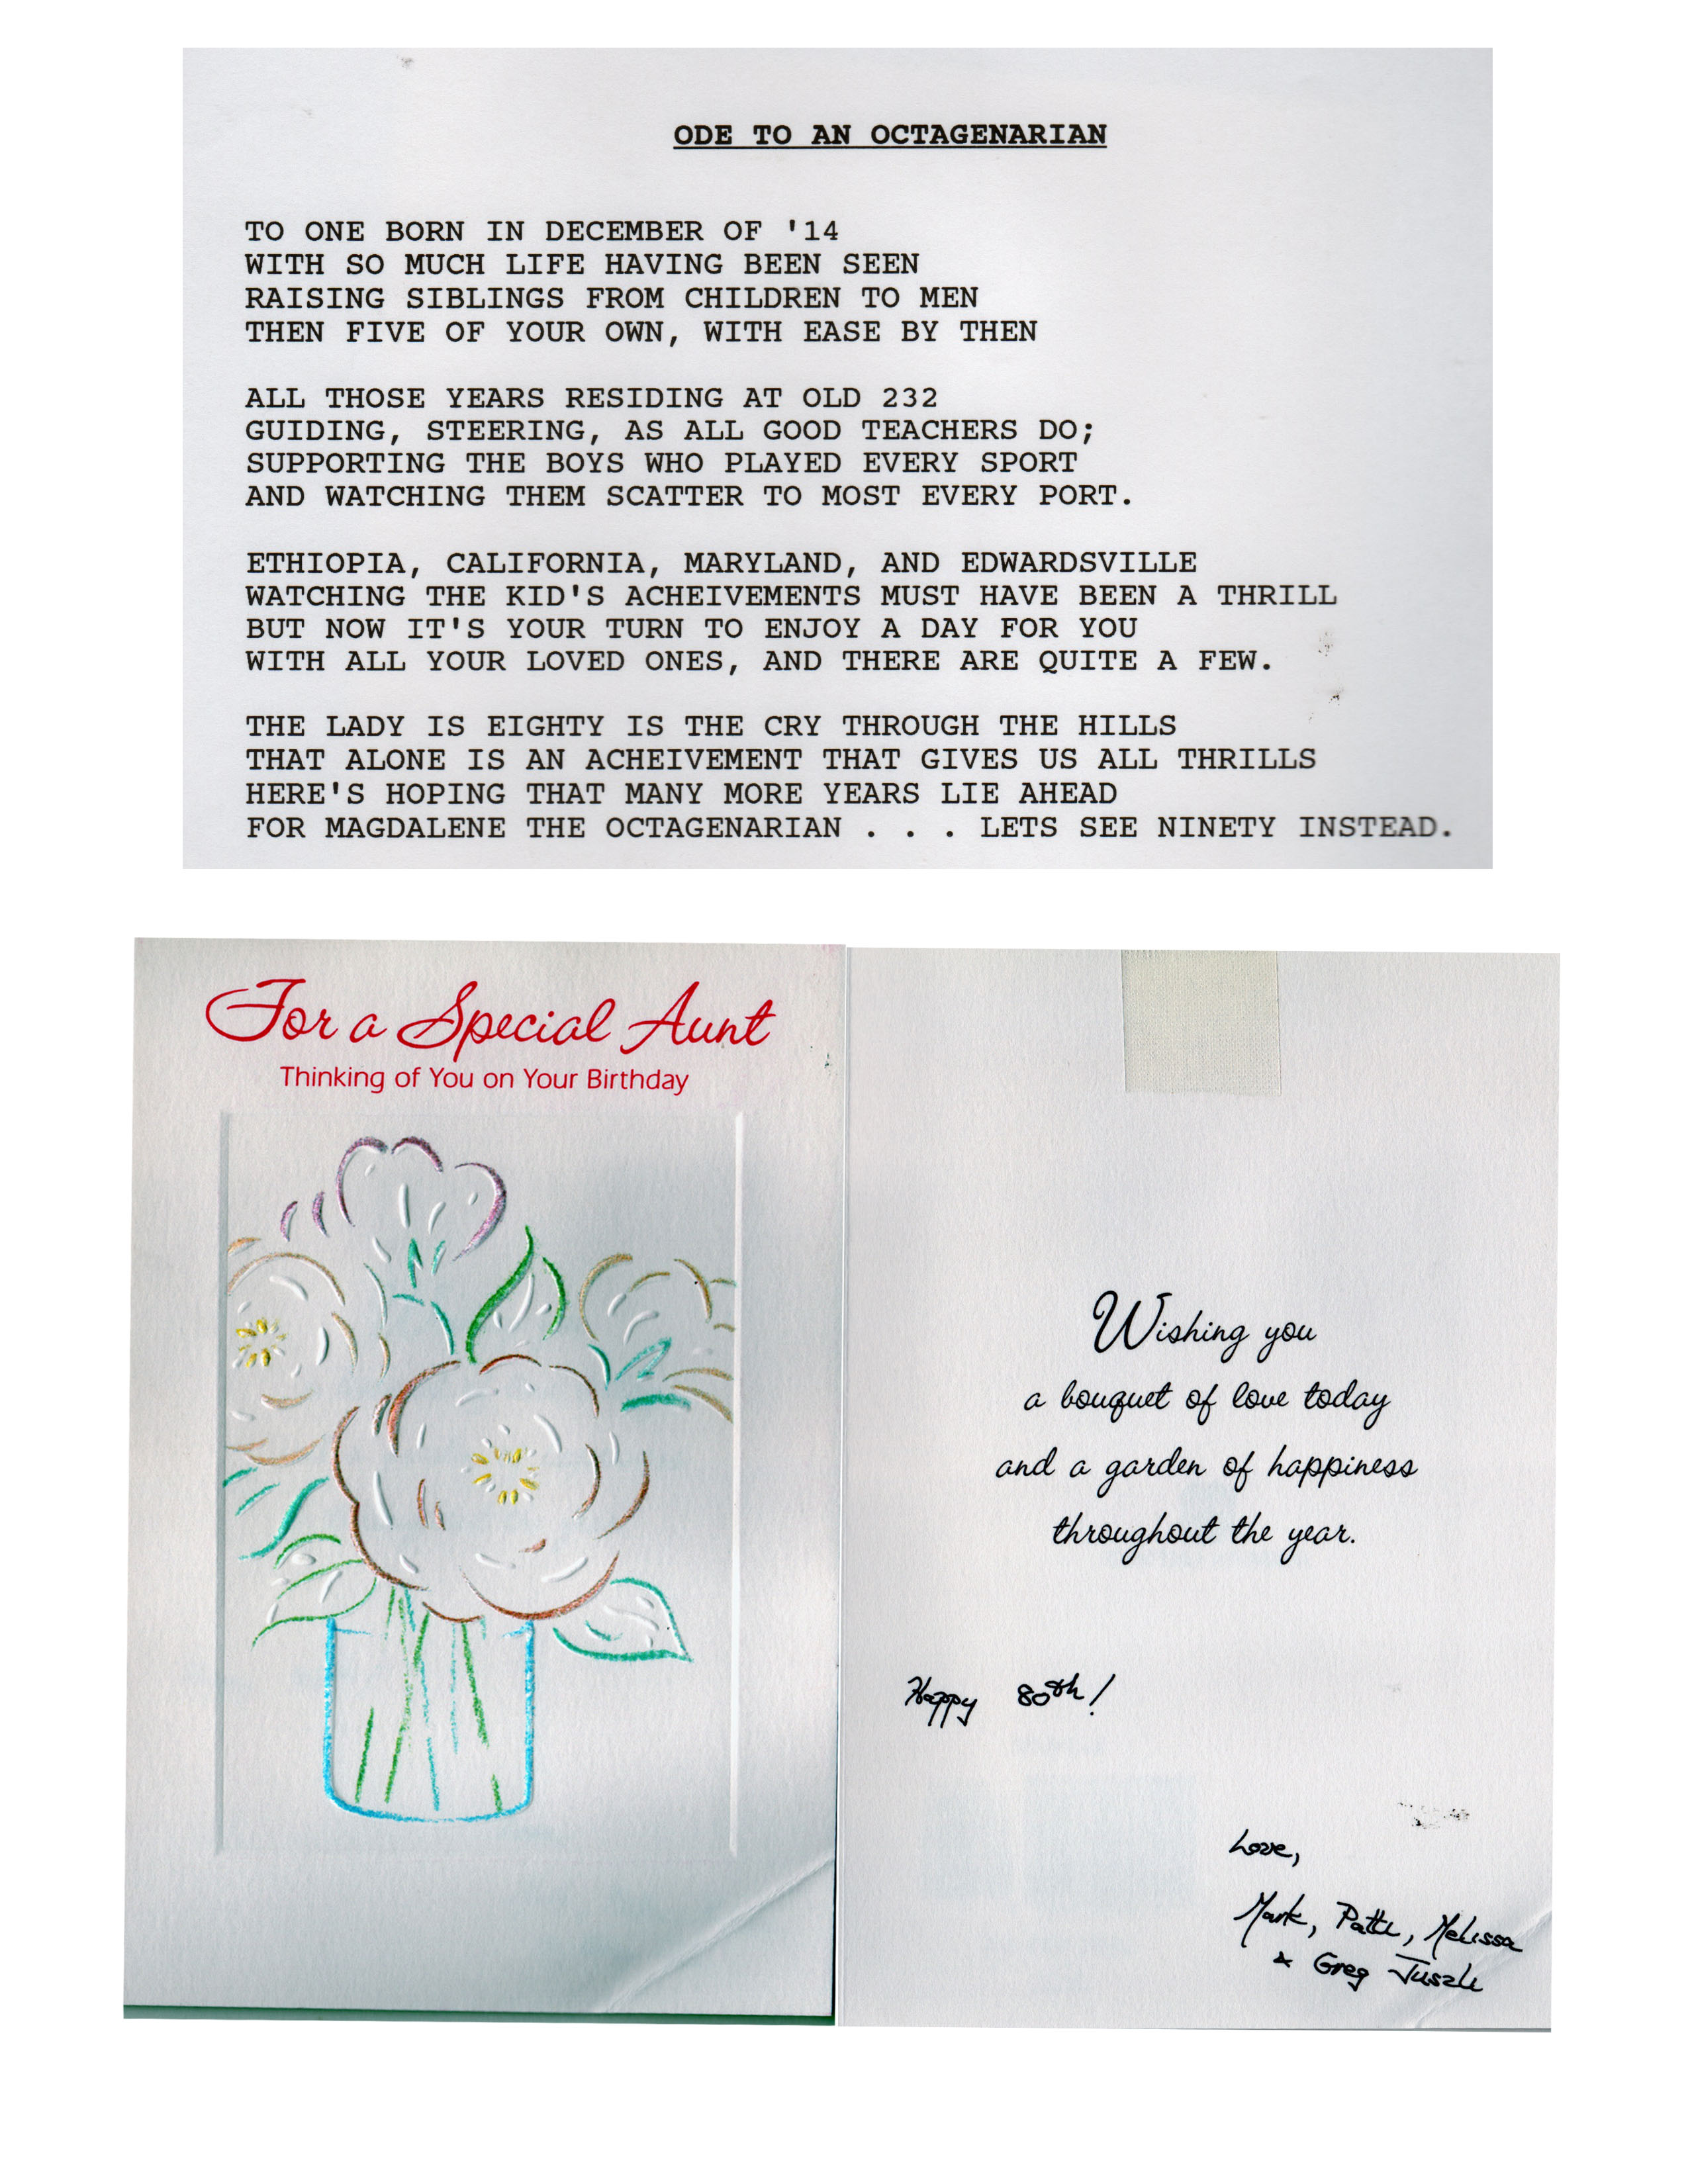 ODE TO AN OCTAGENARIAN
TO ONE BORN IN DECEMBER OF '14
WITH SO MUCH LIFE HAVING BEEN SEEN
RAISING SIBLINGS FROM CHILDREN TO MEN
THEN FIVE OF YOUR OWN, WITH EASE BY THEN
ALL THOSE YEARS RESIDING AT OLD 232
GUIDING, STEERING, AS ALL GOOD TEACHERS DO;
SUPPORTING THE BOYS WHO PLAYED EVERY SPORT
AND WATCHING THEM SCATTER TO MOST EVERY PORT.
ETHIOPIA, CALIFORNIA, MARYLAND, AND EDWARDSVILLE
WATCHING THE KID'S ACHEIVEMENTS MUST HAVE BEEN A THRILL
BUT NOW IT'S YOUR TURN TO ENJOY A DAY FOR YOU
WITH ALL YOUR LOVED ONES, AND THERE ARE QUITE A FEW.
THE LADY IS EIGHTY IS THE CRY THROUGH THE HILLS
THAT ALONE IS AN ACHEIVEMENT THAT GIVES US ALL THRILLS
HERE'S HOPING THAT MANY MORE YEARS LIE AHEAD
FOR MAGDALENE THE OCTAGENARIAN . . . LETS SEE NINETY INSTEAD.
For a Special Aunt
Thinking of You on Your Birthday
Wishing you
a bouquet of love today
and a garden of happiness
throughout the year.
Happy 80th!
Love,
Mark, Patti, Melissa
& Greg